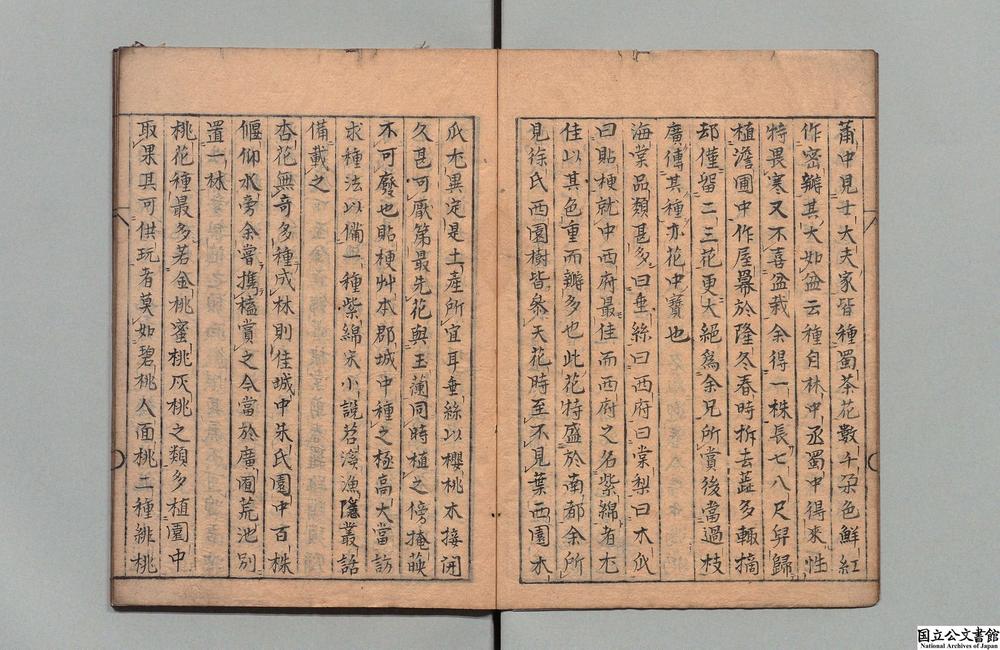 莆中見士大夫家皆種蜀茶花數千朶色鮮紅
作密瓣其大如盆云種自林中丞蜀中得來性
特畏寒又不喜盆栽余得一株長七八尺舁歸
植澹圃中作屋冪於隆冬春時拆去蕋多輒摘
却僅留二三花更大絕為余兄所賞後當過枝
廣傳其種亦花中寶也
海棠品類甚多曰垂絲曰西府曰棠梨曰木瓜
曰貼梗就中西府最佳而西府之名紫綿者尤
佳以其色重而瓣多也此花特盛於南都余所
見徐氏西園樹皆參天花時至不見葉西園木
瓜尤異定是土産所宜耳垂絲以櫻桃木接開
久甚可厭第最先花與玉蘭同時植之傍掩映
不可廢也貼梗艸本郡城中種之極高大當訪
求種法以備一種紫綿宋小說苕溪漁隱叢話
備載之
杏花無奇多種成林則佳城中朱氏園中百株
偃仰水旁余嘗攜榼賞之今當於廣囿荒池別
置一林
桃花種最多若金桃蜜桃灰桃之類多植園中
取果其可供玩者莫如碧桃人面桃二種緋桃
国立公文書館
National Archives of Japan